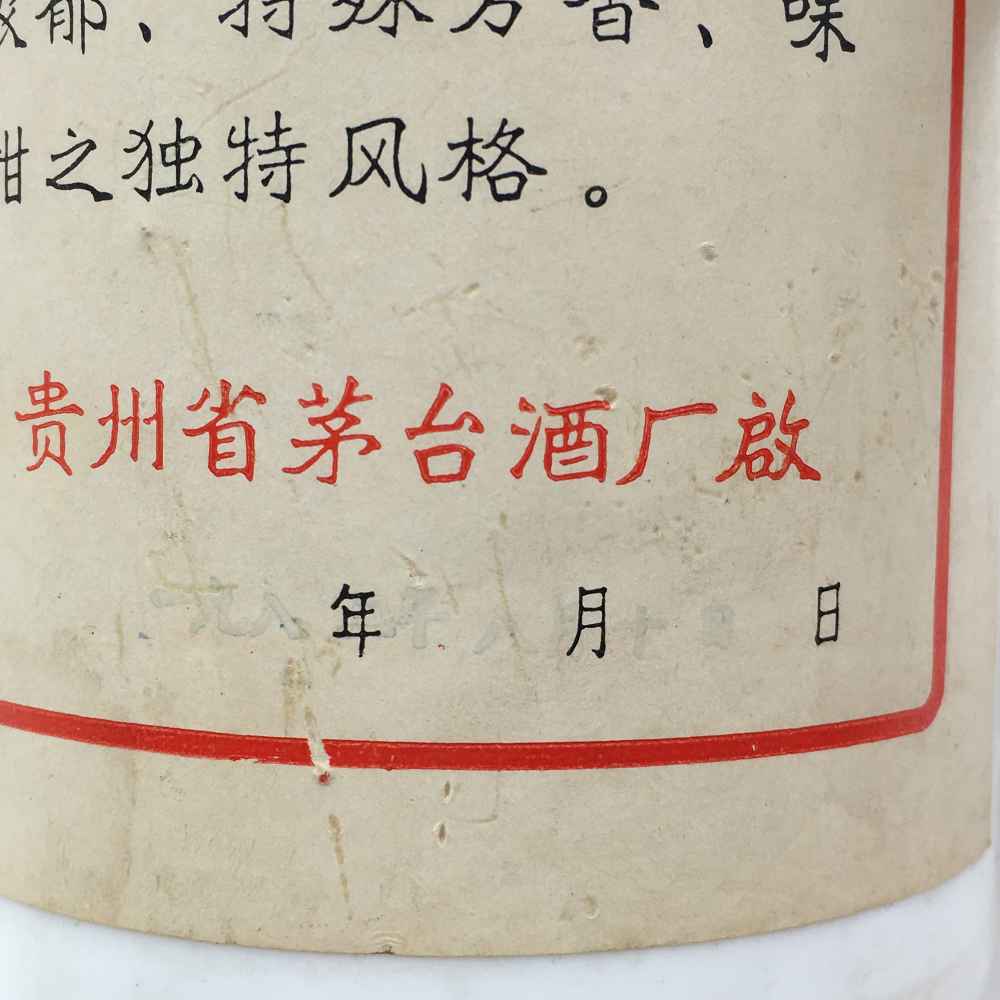 郁、特殊芳香、味
甜之独特风格。
贵州省茅台酒厂啟
年 月 日